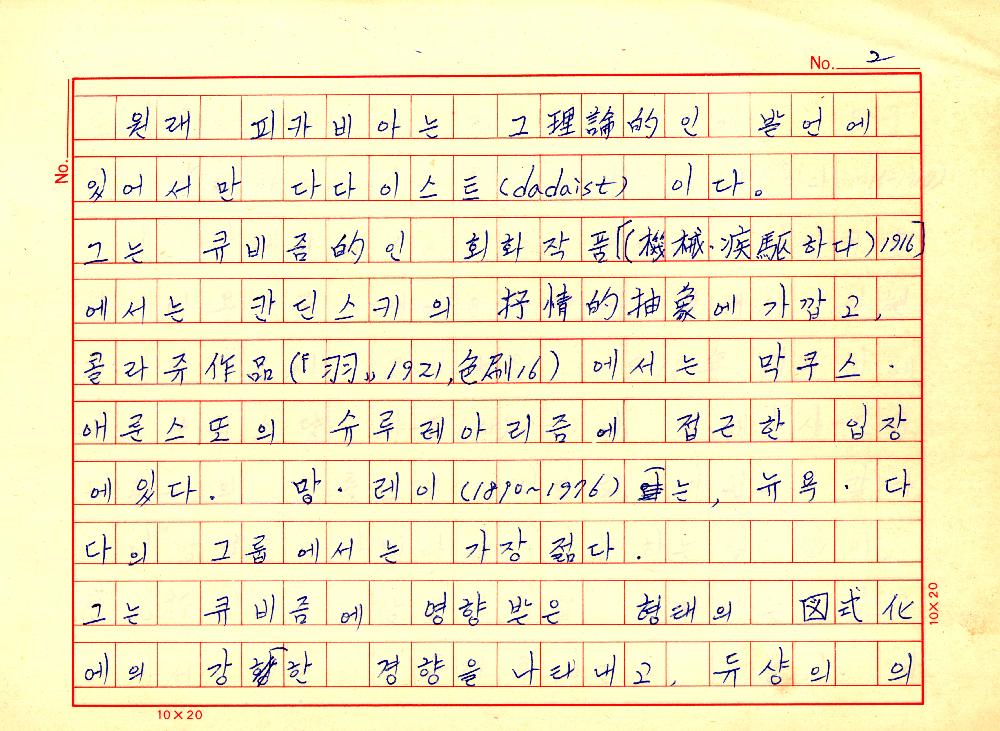 No. 2
No.
원래 피카비아는 그 理論的인 발언에
있어서만 다다이스트(dadaist) 이다.
그는 큐비즘的인 회화작품[(機械·疾駆하다)1916]
에서는 칸딘스키의 抒情的抽象에 가깝고,
콜라쥬作品(『羽』, 1921, 色刷16) 에서는 막쿠스·
애른스또의 슈루레아리즘에 접근한 입장
에있다. 망·레이 (1890~1976) 는, 뉴욕·다
다의 그룹에서는 가장 젊다.
그는 큐비즘에 영향받은 형태의 図式化
에의 강한 경향을 나타내고, 듀샹의 의
10×20
10×20